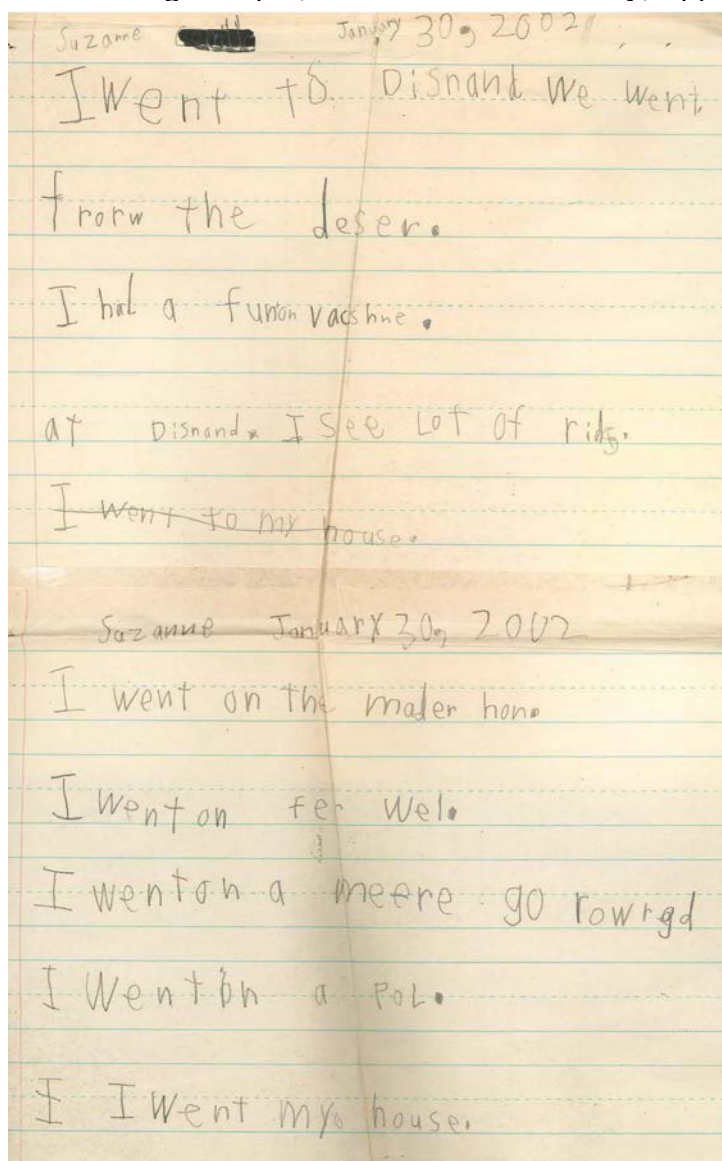 Suzanne January 30, 2002
I Went to Disnand We Went
frorw the deser.
I had a funon vacshne.
at Disnand. I see Lot of rids.
I went to my house.
Suzanne January 30, 2002
I went on the mader hon.
I Went on fer Wel.
I wenton a meere go rowrgd
I Wenton a PoL.
I I Went my house.